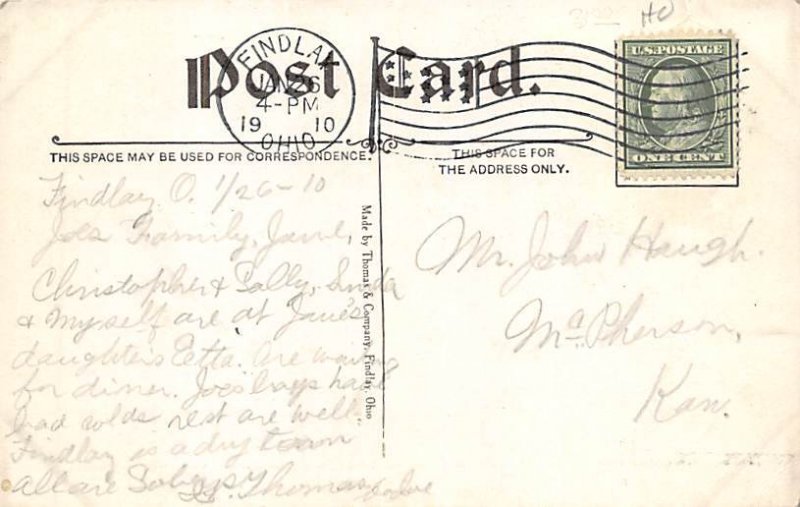 HO
Post Card.
FINDLAY
JAN 26
4-PM
19 10
OHIO
U.S. POSTAGE
ONE CENT
THIS SPACE MAY BE USED FOR CORRESPONDENCE.
THIS SPACE FOR
THE ADDRESS ONLY.
Findlay O. 1/26-10
Joes Family, Jane,
Christopher & Sally,
& Myself are at Jane's
daughters Etta. Are waiting
for dinner. Joes boys have
bad colds rest are well.
Findlay is a dry town
all are Sober Thomas
Made by Thomas & Company, Findlay, Ohio
Mr. John Haugh.
McPherson,
Kan.